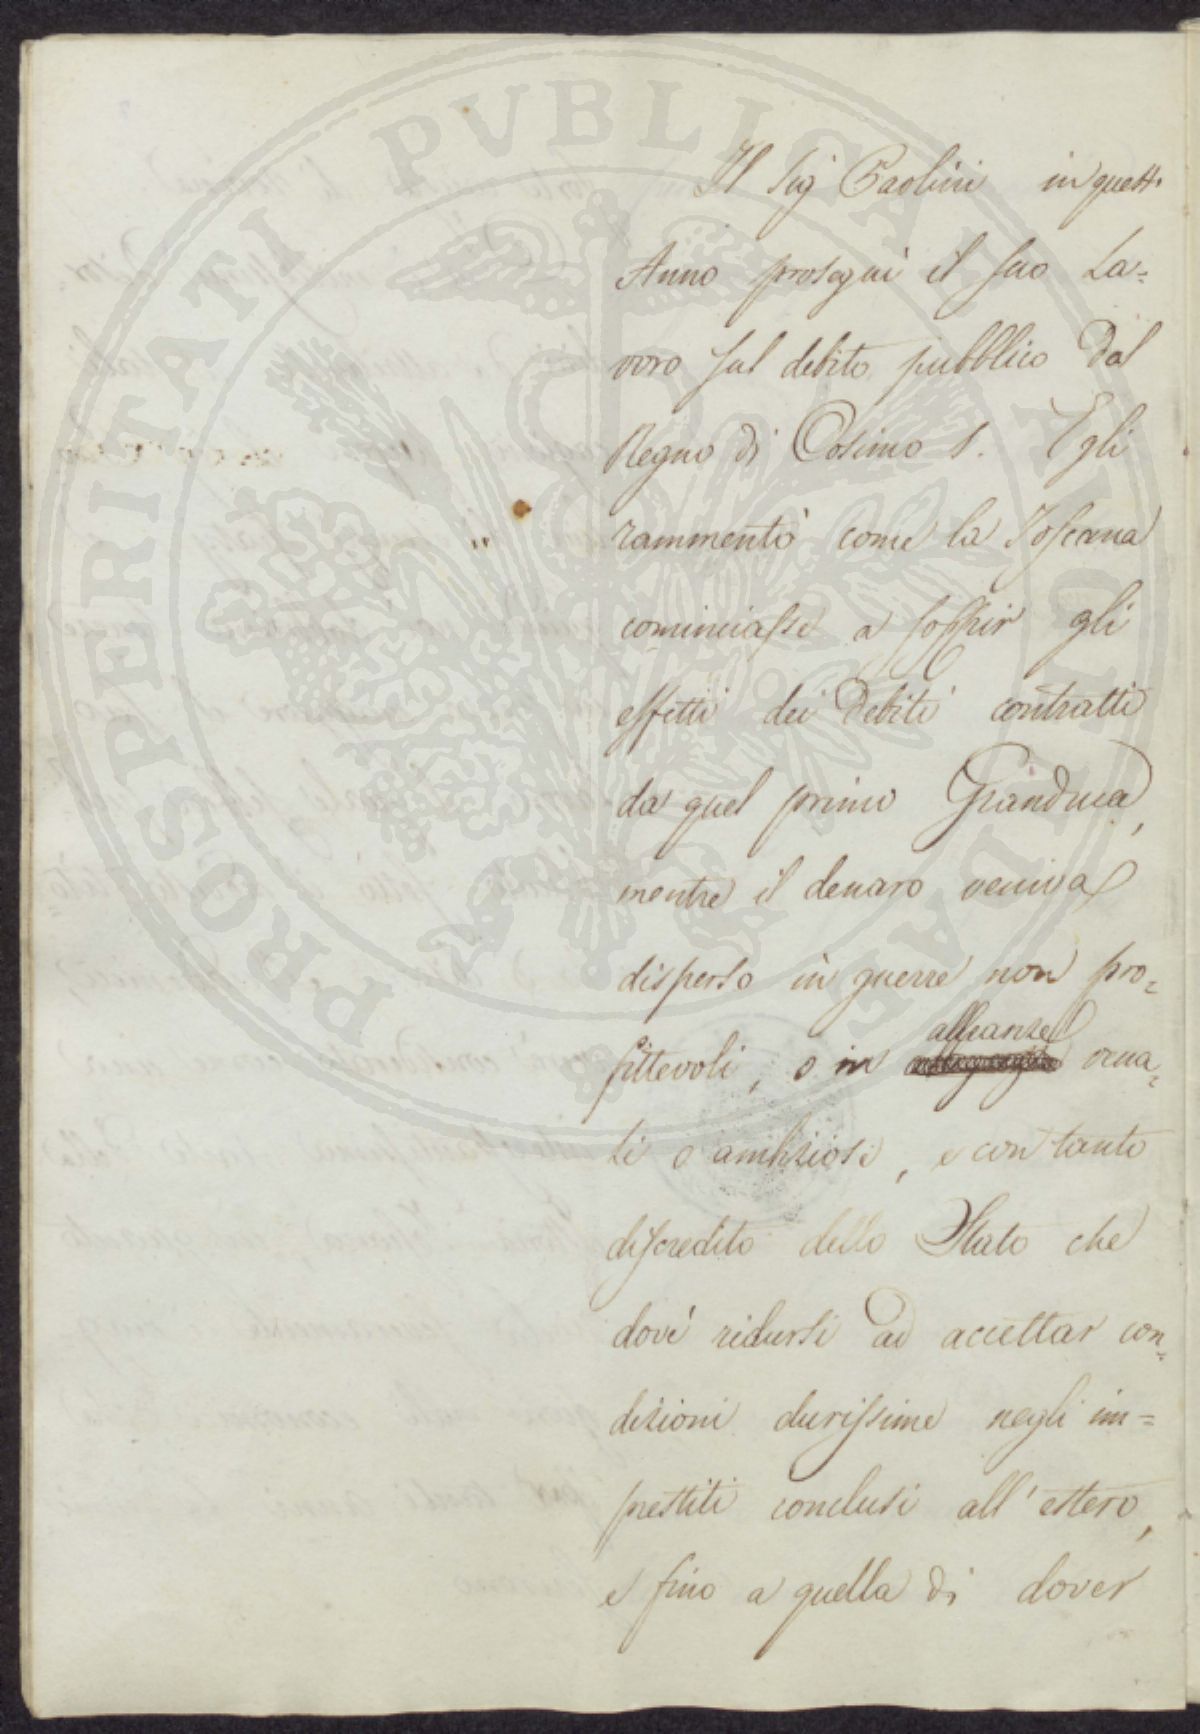 PROSPERITATI PVBLICAE AVGENDAE
Il Sig Paolini in quest'
Anno proseguì il suo La=
voro sul debito pubblico dal
Regno di Cosimo I. Egli
rammentò come la Toscana
cominciasse a soffrir gli
effetti dei Debiti contratti
da quel primo Granduca,
mentre il denaro veniva
disperso in guerre non pro=
fittevoli, o in
alleanze
o ambiziosi, e con tanto
discredito dello Stato che
dovè ridursi ad accettar con=
dizioni durissime negli im=
prestiti conclusi all'estero,
e fino a quella di dover